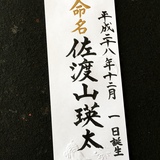 平成二八年十二月 一日誕生
命名
佐渡山瑛太